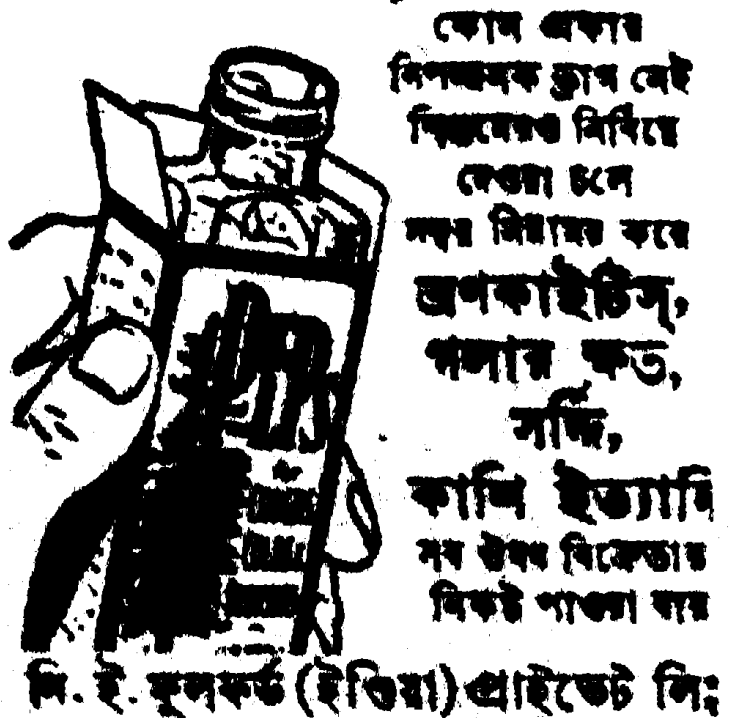 কোন প্রকার
বিপজ্জনক ড্রাগ নেই
নির্বিঘ্নে
দেওয়া চলে
সত্বর নিরাময় করে
ব্রণকাইটিস্,
গলার ক্ষত,
সর্দ্দি,
কাশি ইত্যাদি
সব ঔষধ বিক্রেতার
নিকট পাওয়া যায়
সি. ই. ফুলফর্ড (ইণ্ডিয়া) প্রাইভেট লিঃ